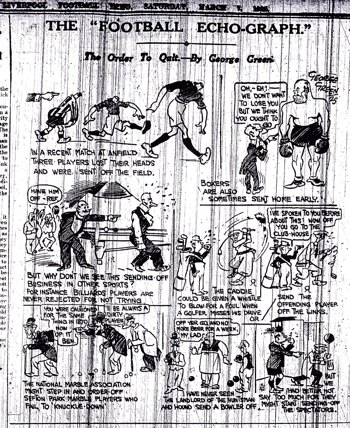 LIVERPOOL FOOTBALL ECHO, SATURDAY, MARCH 7,
THE "FOOTBALL ECHO-GRAPH."
The Order To Quit.—By George Green.
GEORGE
GREEN
OH,-EH!—
WE DON'T
WANT TO
LOSE YOU
BUT WE
THINK
YOU OUGHT
TO
IN A RECENT MATCH AT ANFIELD
THREE PLAYERS LOST THEIR HEADS
AND WERE SENT OFF THE FIELD.
BOXERS
ARE ALSO
SOMETIMES SENT HOME EARLY.
HAVE HIM
OFF - REF.
BUT WHY DON'T WE SEE THIS SENDING-OFF
BUSINESS IN OTHER SPORTS?
FOR INSTANCE BILLIARDS PLAYERS ARE
NEVER REJECTED FOR NOT TRYING
THE CADDIE
COULD BE GIVEN A WHISTLE
TO BLOW FOR A FOUL WHEN
A GOLFER MISSES HIS DRIVE
OR
I'VE SPOKEN TO YOU BEFORE
ABOUT THIS! NOW OFF
YOU GO TO THE
CLUB-HOUSE
SEND THE
OFFENDING PLAYER
OFF THE LINKS.
YOU WERE CAUTIONED
FOR THE SAME
THING IN
NOW
OP IT
BEN.
THE NATIONAL MARBLE ASSOCIATION
MIGHT STEP IN AND ORDER-OFF
SEFTON PARK MARBLE PLAYERS WHO
FAIL TO "KNUCKLE-DOWN"
OFF YER GO, AND NO
MORE BEER FOR A WEEK,
MY LAD!
I HAVE NEVER SEEN
THE LANDLORD OF THE HUNTSMAN
AND HOUND SEND A BOWLER OFF
BUT
WE
HAD BETTER NOT
SAY TOO MUCH FOR THEY
MIGHT START SENDING-OFF
THE SPECTATORS.